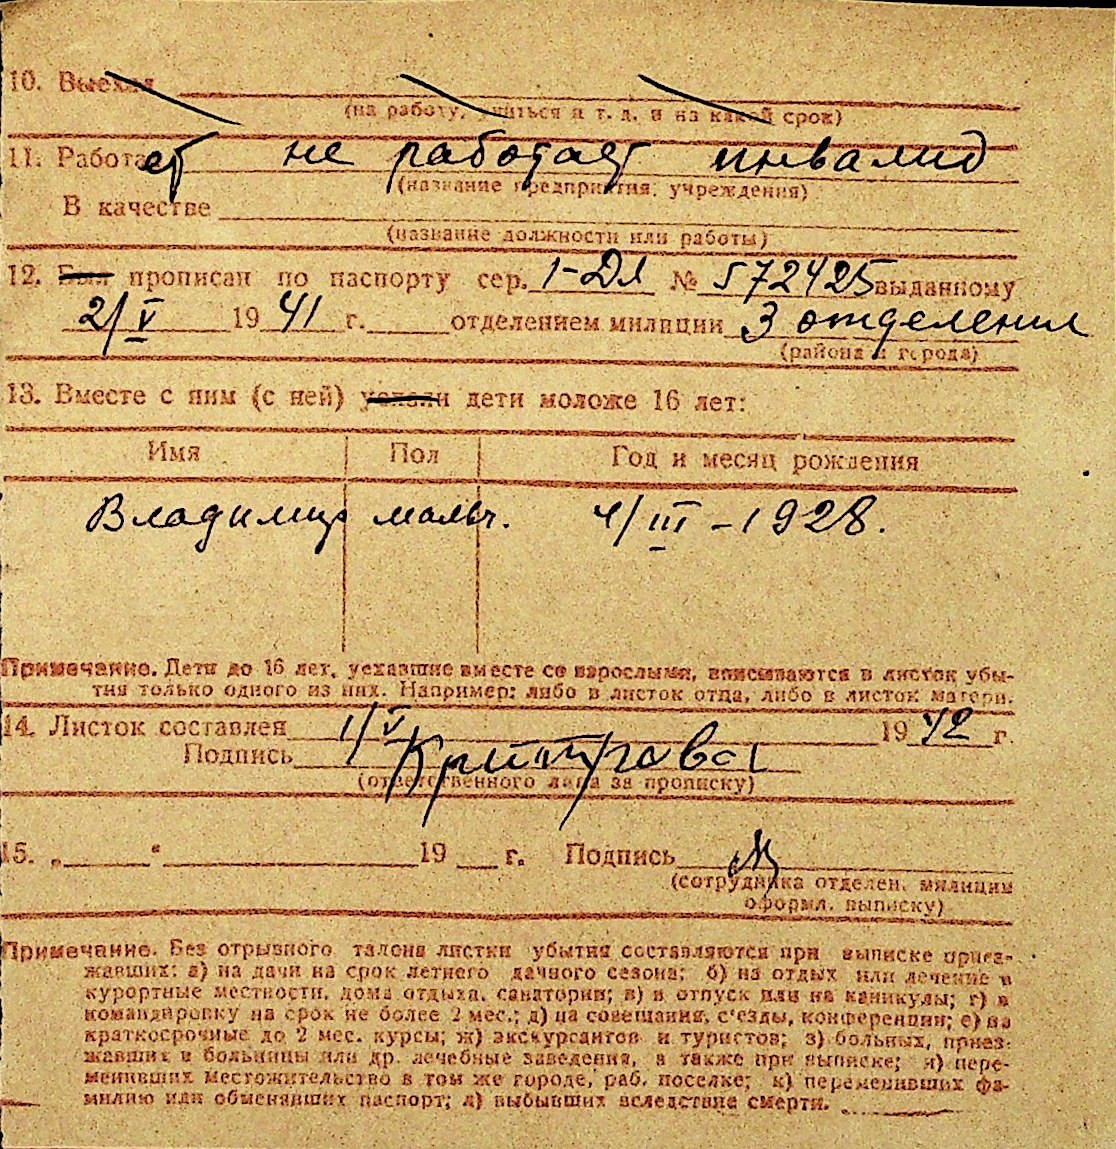 10. Выехал
(на работу, учиться и т. д. и на какой срок)
11. Работает не работает инвалид
(название предприятия, учреждения)
В качестве
(название должности или работы)
12. Был прописан по паспорту сер. 1-ДЛ № 572425 выданному
2/V 1941 г. отделением милиции 3 отделения
(района и города)
13. Вместе с ним (с ней) уехали дети моложе 16 лет:
Имя Пол Год и месяц рождения
Владимир мальч. 4/III-1928.
Примечание. Дети до 16 лет, уехавшие вместе со взрослыми, вписываются в листок убы-
тия только одного из них. Например: либо в листок отца, либо в листок матери.
14. Листок составлен 1/V 1942 г.
Подпись
(ответственного лица за прописку)
15. „ “ 19 г. Подпись
(сотрудника отделен. милиции
оформл. выписку)
Примечание. Без отрывного талона листки убытия составляются при выписке приез-
жавших: а) на дачи на срок летнего дачного сезона; б) на отдых или лечение в
курортные местности, дома отдыха, санатории; в) в отпуск или на каникулы; г) в
командировку на срок не более 2 мес.; д) на совещания, с'езды, конференции; е) на
краткосрочные до 2 мес. курсы; ж) экскурсантов и туристов; з) больных, приез-
жавших в больницы или др. лечебные заведения, а также при выписке; и) пере-
менивших местожительство в том же городе, раб. поселке; к) переменивших фа-
милию или обменявших паспорт; л) выбывших вследствие смерти.